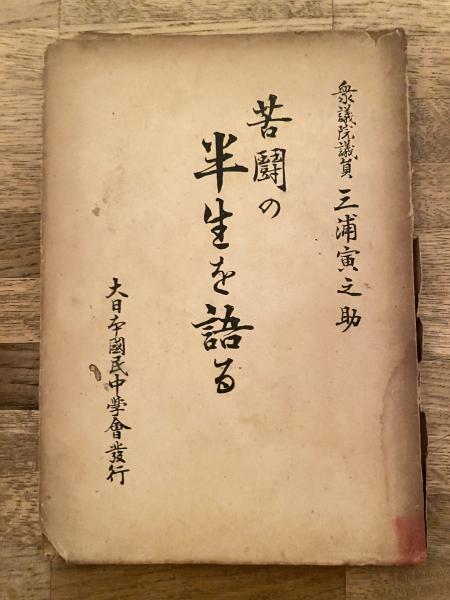 衆議院議員 三浦寅之助
苦鬪の
半生を語る
大日本國民中學會發行